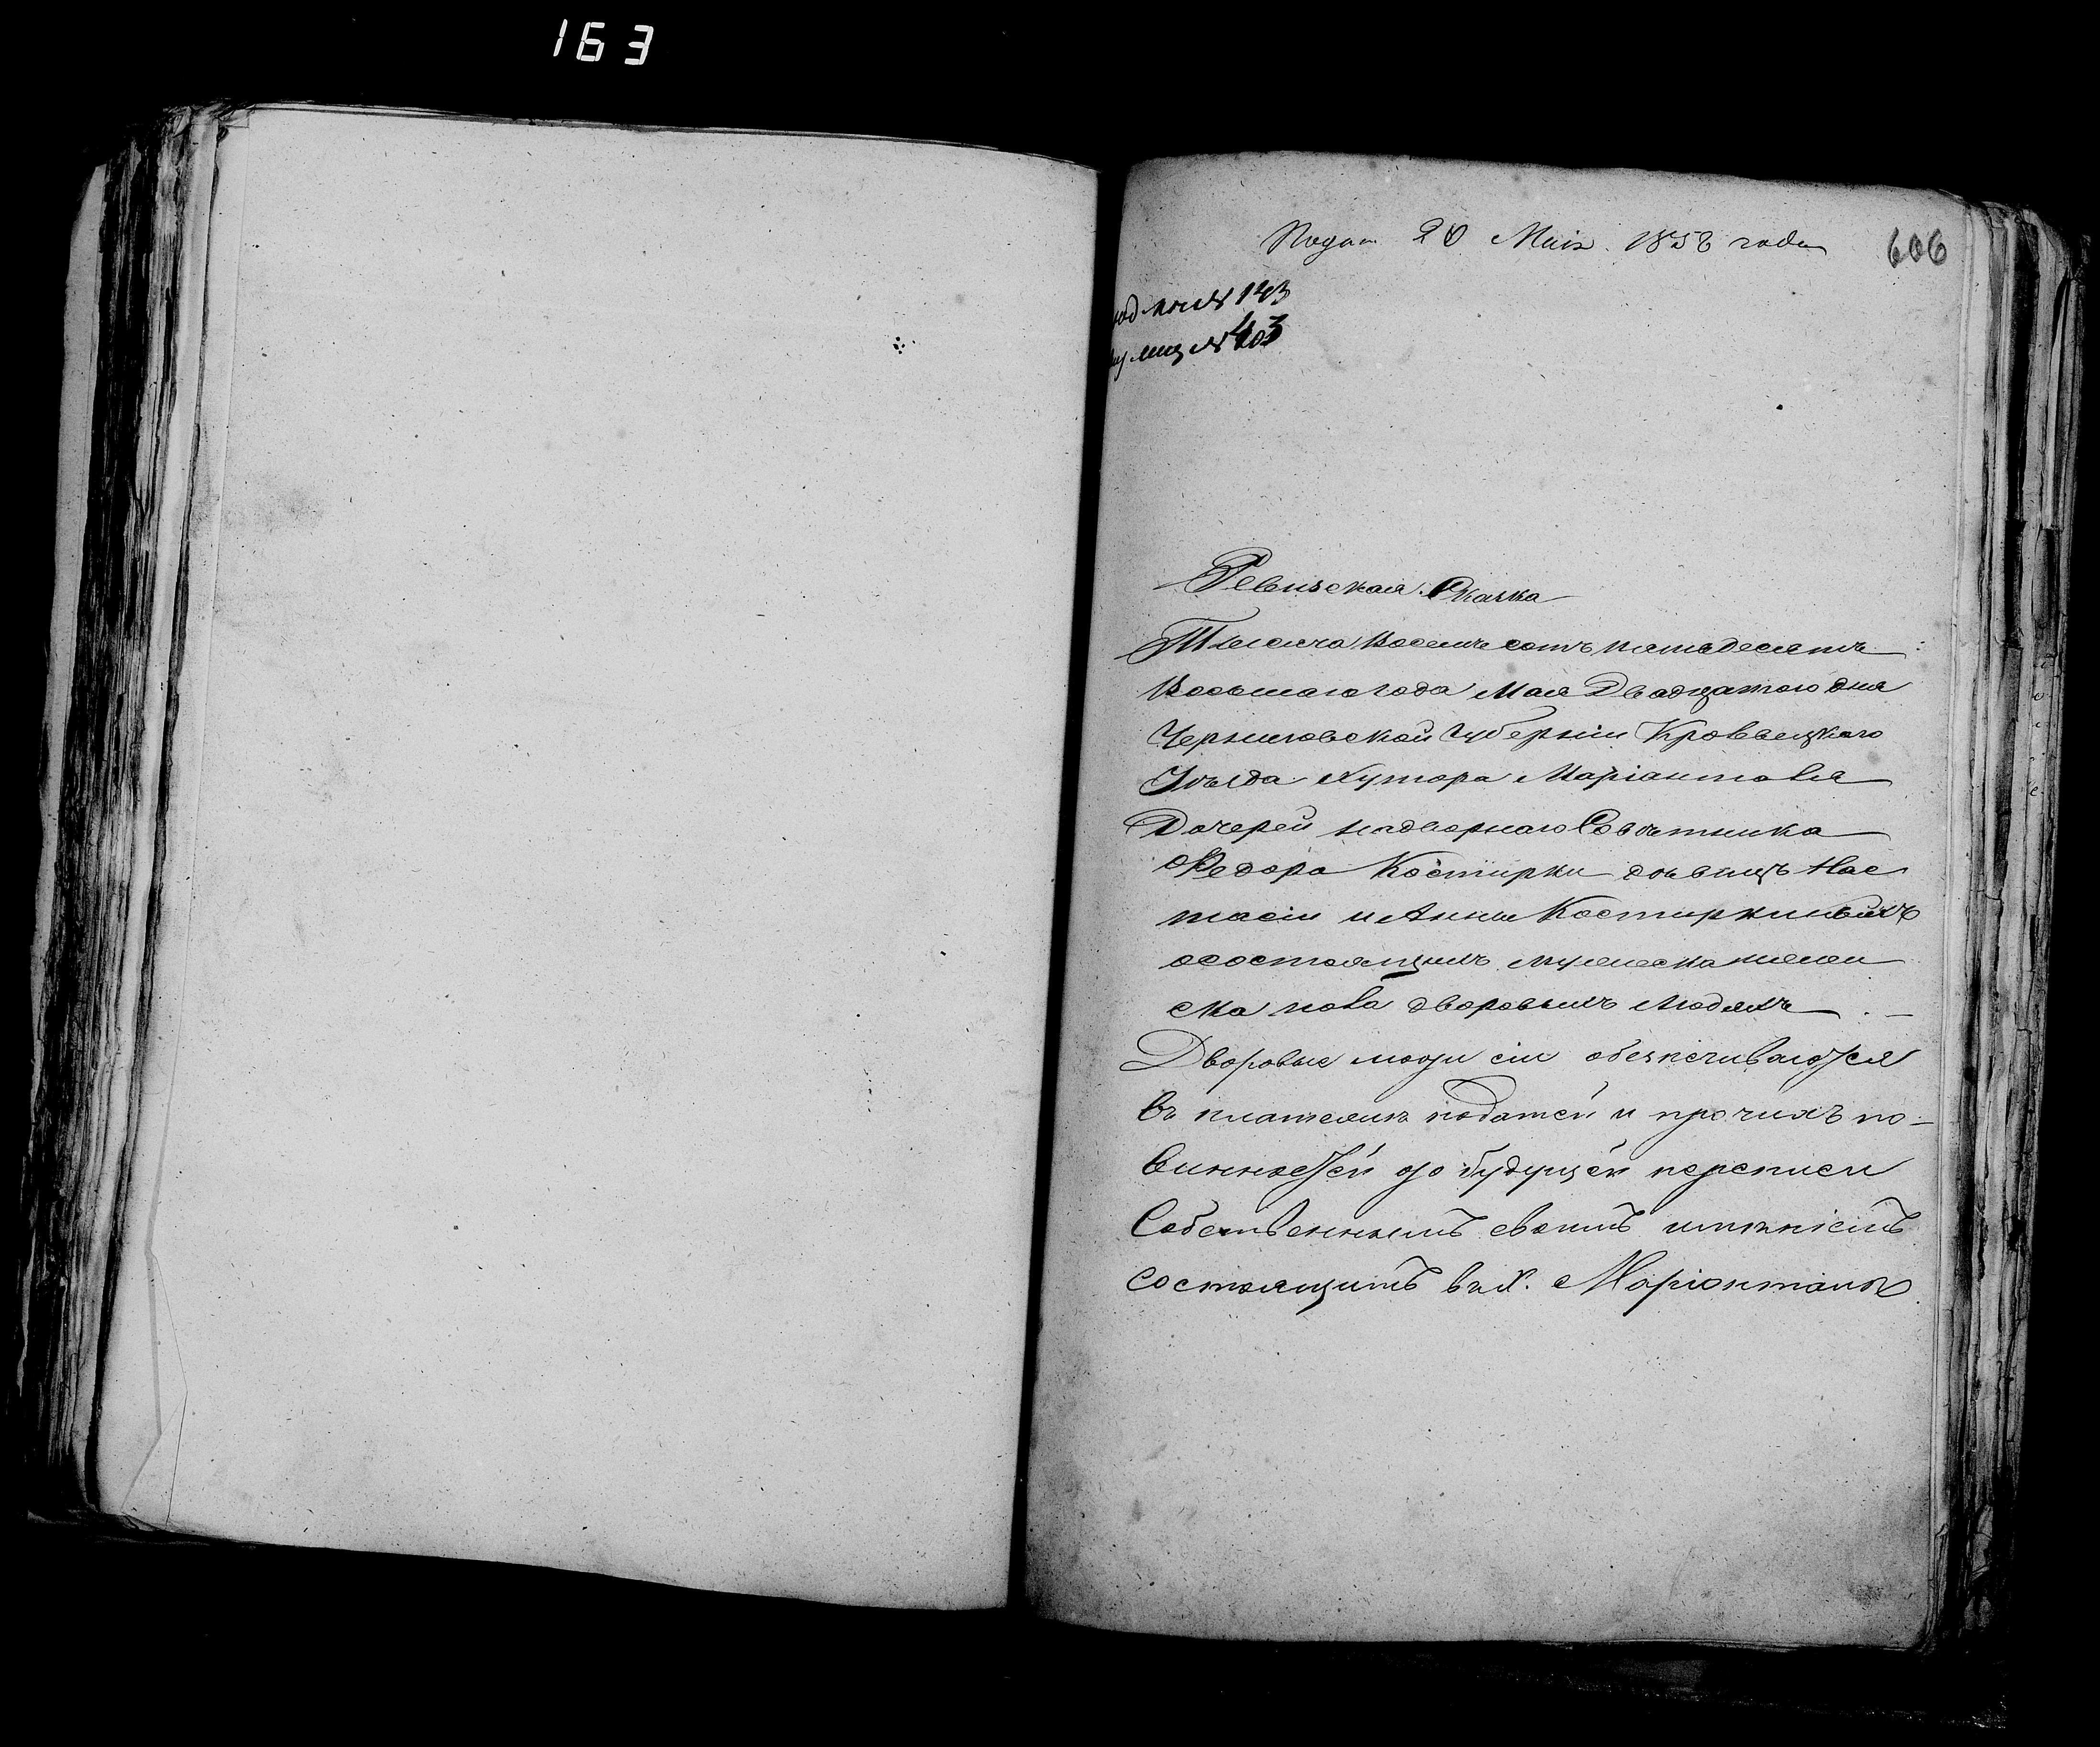 163
Подан 20 Мая 1858 года
606
№ 143
№ 403
Ревизская Сказка
Тысяча восемь сотъ пятьдесятъ
Восьмаго года Мая Двадцатого дня
Черниговской Губерніи Кролвецкого
Уѣзда Хутора Маріантова
Дочерей надворнаго Совѣтника
Федора Костирки дѣвицъ Нас
тасіи и Анны Костиркиныхъ
осостоящихъ мужеска и женс
ка пола дворовыхъ людяхъ
Дворовые люди сіи обезпечиваются
въ платежѣ податей и прочихъ по-
винностей до будущей переписи
Собственнымъ своимъ имѣніемъ
состоящимъ въ Х. Маріонтовѣ